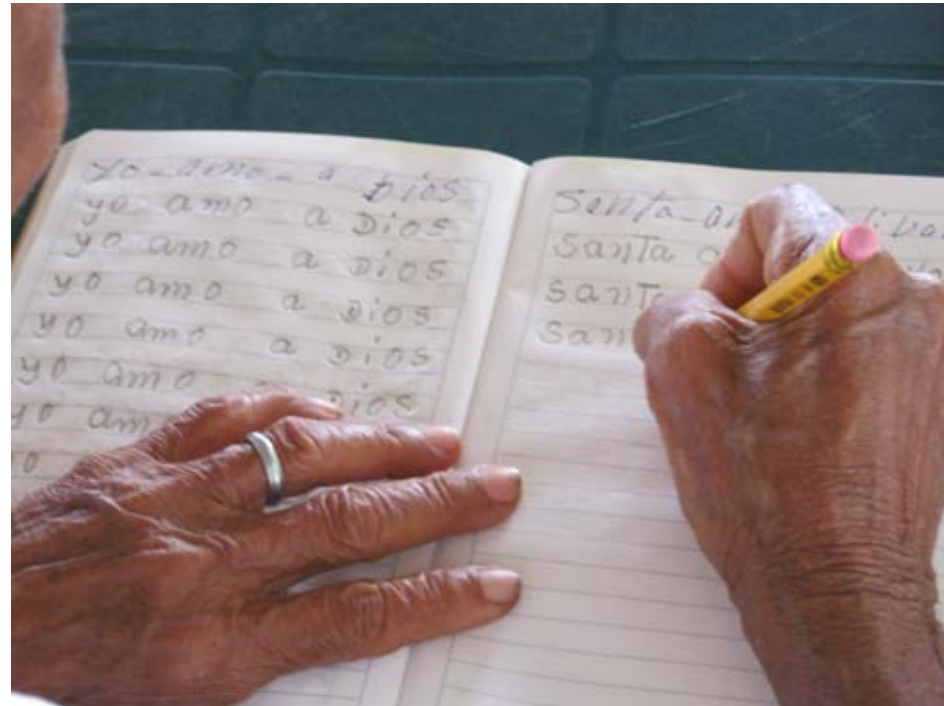 yo-amo-a Dios
yo amo a Dios
yo amo a Dios
yo amo a Dios
yo amo a Dios
yo amo Dios
yo am
yo
Santa
Santa
Santa
San